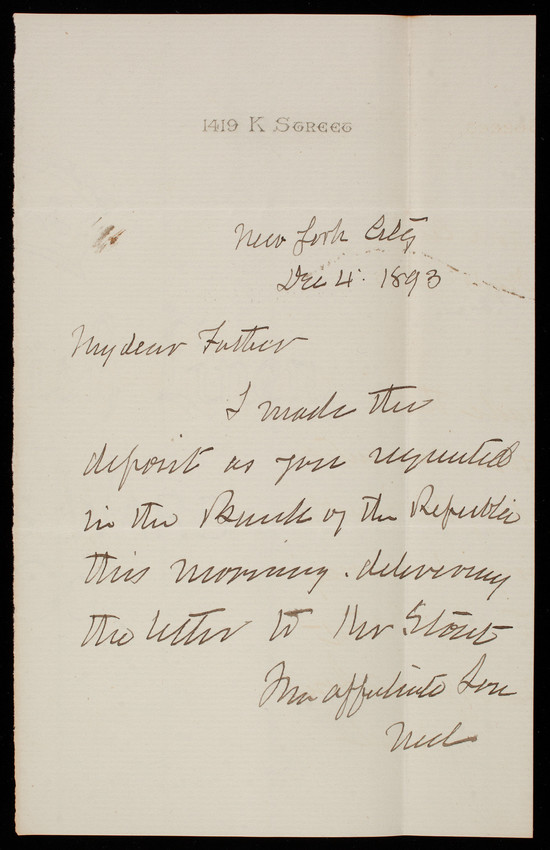 1419 K Street
New York City
Dec 4. 1893
My dear Father
I made the
deposit as you requested
in the Bank of the Republic
this morning. delivering
the letter to Mr Stout
Your affectionate Son
Ned